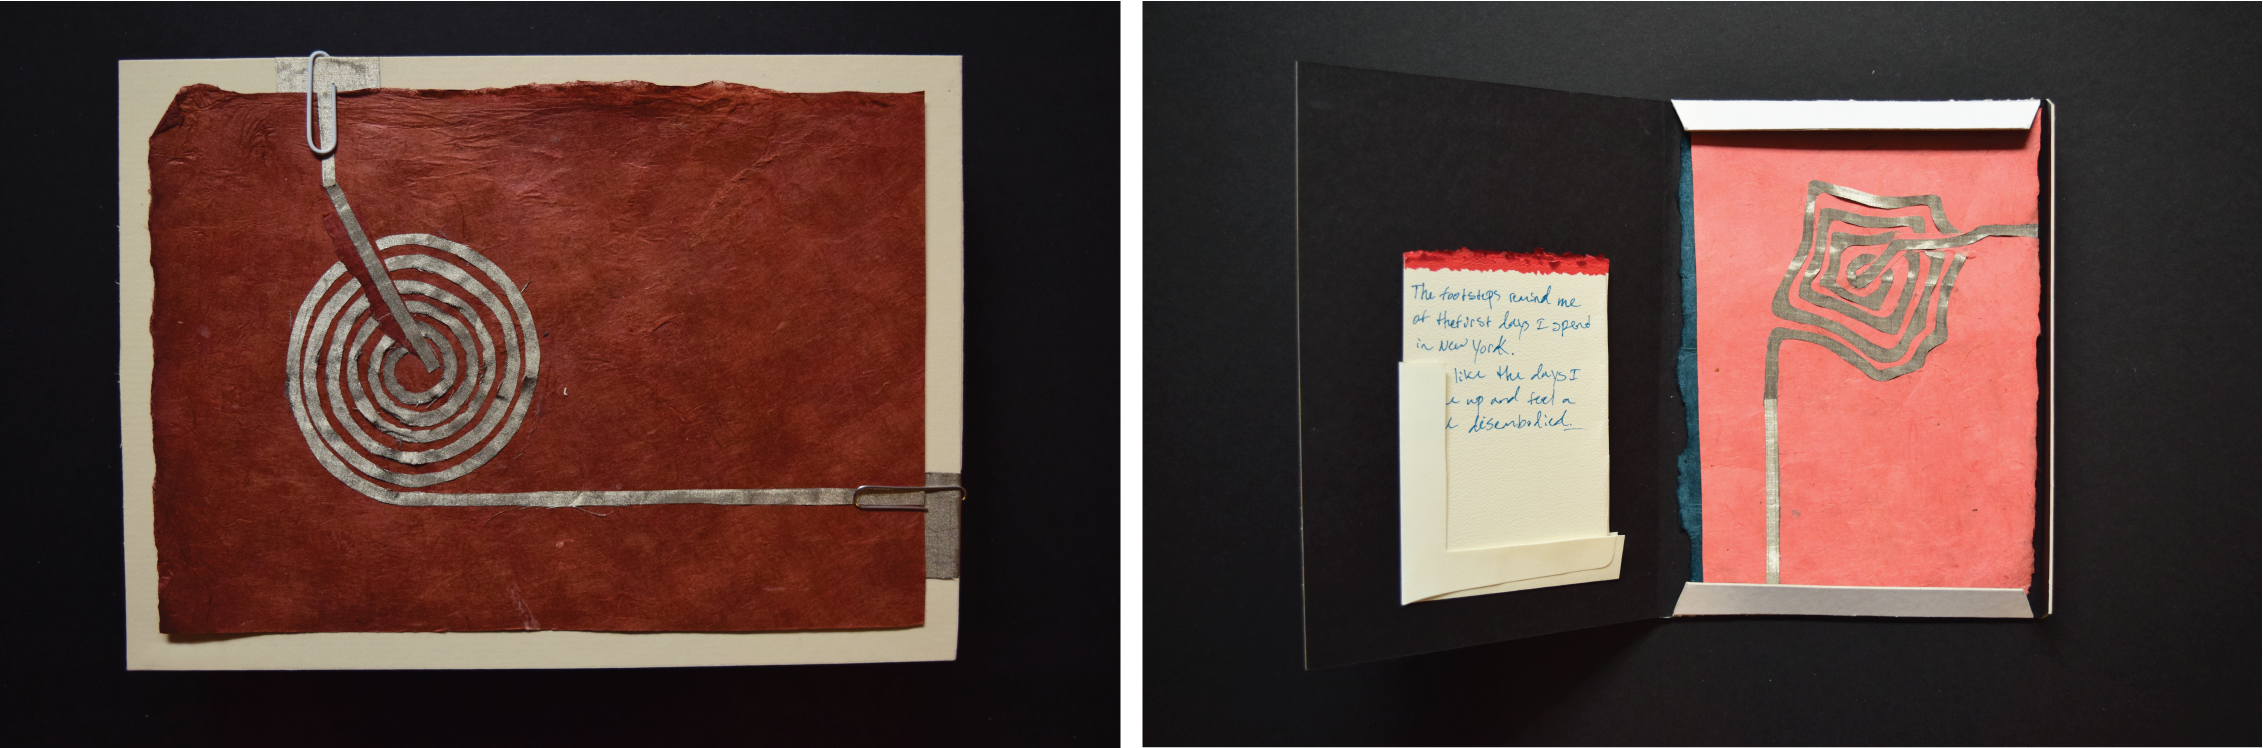 The footsteps remind me
of the first days I spend
in New York.
like the days I
up and feel a
disembodied.